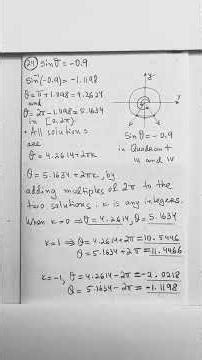 (24) sin θ = -0.9
sin⁻¹(-0.9) = -1.1198
θ = π + 1.1198 = 4.2614
and
θ = 2π - 1.1198 = 5.1634
in [0, 2π)
• All solutions
are
θ = 4.2614 + 2πk
θ = 5.1634 + 2πk, by
adding multiples of 2π to the
two solutions. k is any integers.
When k = 0 ⇒ θ = 4.2614, θ = 5.1634
k = 1 ⇒ θ = 4.2614 + 2π = 10.5446
θ = 5.1634 + 2π = 11.4466
k = -1, θ = 4.2614 - 2π = -2.0218
θ = 5.1634 - 2π = -1.1198
y
x
sin θ = -0.9
in Quadrant
III and IV